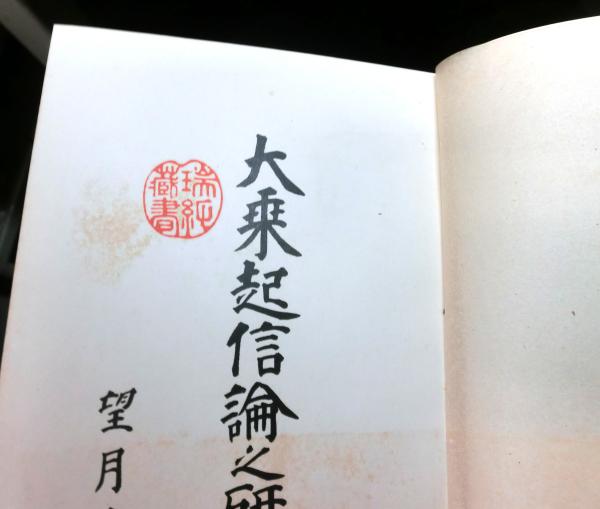 大乗起信論之研
瑞
藏書
望月